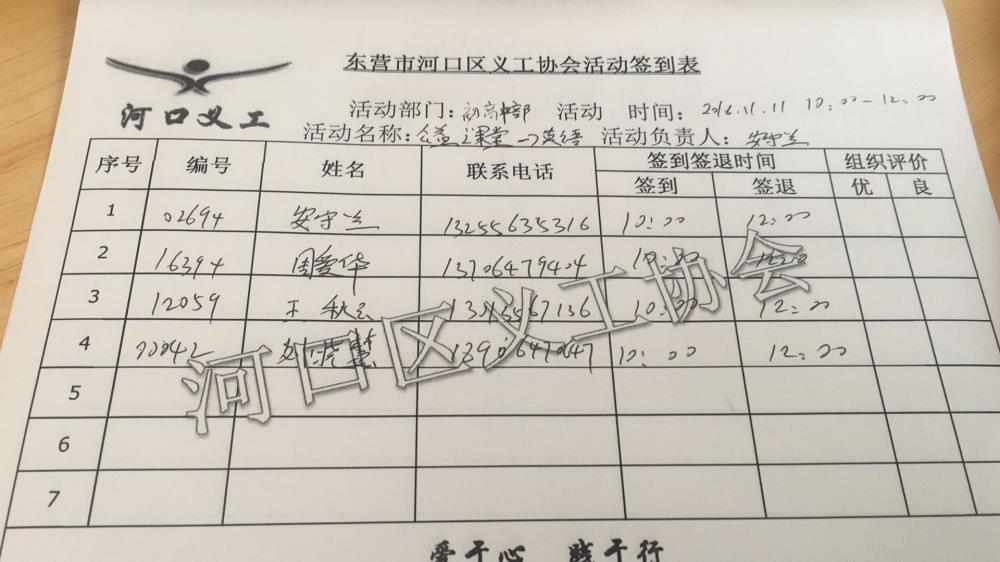 东营市河口区义工协会活动签到表
河口义工
活动部门：初高中部 活动 时间：2016.11.11 10:00-12:00
活动名称：公益课堂 英语 活动负责人：安守兰
序号 编号 姓名 联系电话 签到签退时间 组织评价
签到 签退 优 良
1 02694 安守兰 13255635316 10:00 12:00
2 16394 周爱华 13706479404 10:00 12:00
3 12059 王秋云 10:00 12:00
4 10:00 12:00
5
6
7
河口区义工协会
爱于心 践于行